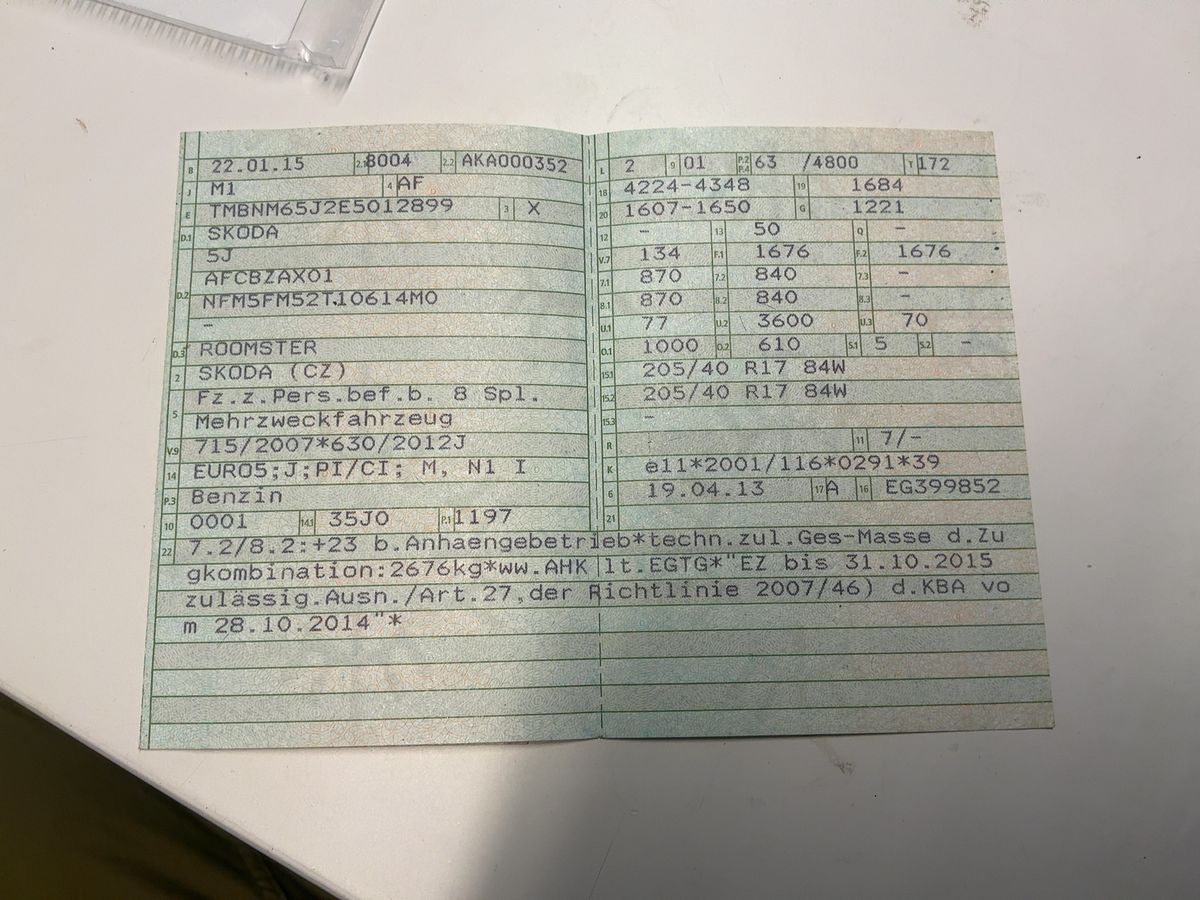 B 22.01.15 2.1 8004 2.2 AKA000352
J M1 4 AF
E TMBNM65J2E5012899 3 X
D.1 SKODA
5J
AFCBZAX01
D.2 NFM5FM52T.10614M0
–
D.3 ROOMSTER
2 SKODA (CZ)
Fz.z.Pers.bef.b. 8 Spl.
5 Mehrzweckfahrzeug
V.9 715/2007*630/2012J
14 EURO5;J;PI/CI; M, N1 I
P.3 Benzin
10 0001 14.1 35J0 P.1 1197
L 2 9 01 P.2 P.4 63 /4800 T 172
18 4224-4348 19 1684
20 1607-1650 G 1221
12 – 13 50 Q –
V.7 134 F.1 1676 F.2 1676
7.1 870 7.2 840 7.3 –
8.1 870 8.2 840 8.3 –
U.1 77 U.2 3600 U.3 70
O.1 1000 O.2 610 S.1 5 S.2 –
15.1 205/40 R17 84W
15.2 205/40 R17 84W
15.3 –
R 11 7/-
K e11*2001/116*0291*39
6 19.04.13 17 A 16 EG399852
21
22 7.2/8.2:+23 b.Anhaengebetrieb*techn.zul.Ges-Masse d.Zu
gkombination:2676kg*ww.AHK lt.EGTG*"EZ bis 31.10.2015
zulässig.Ausn./Art.27,der Richtlinie 2007/46) d.KBA vo
m 28.10.2014"*